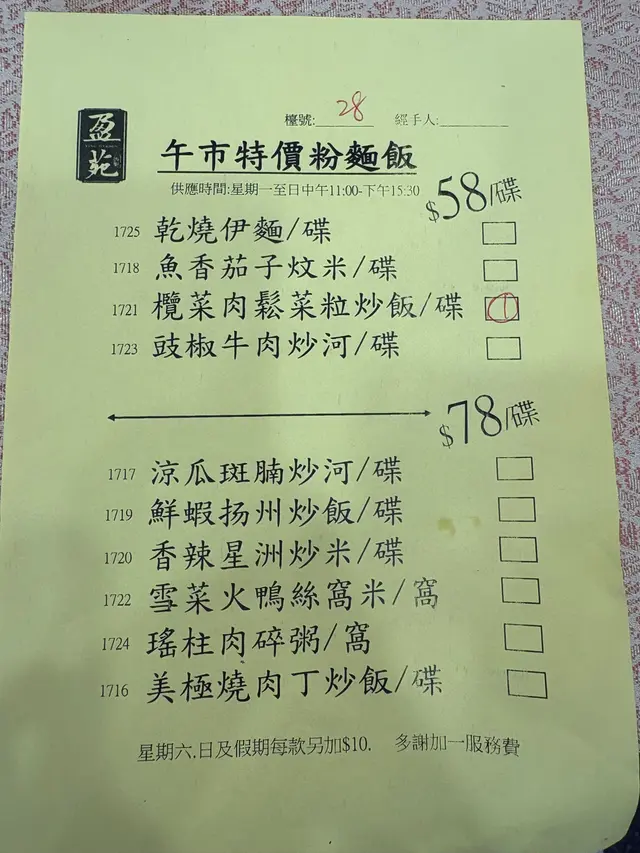 盈苑
檯號:______ 28 經手人:________
午市特價粉麵飯
供應時間:星期一至日中午11:00-下午15:30
$58/碟
1725 乾燒伊麵/碟
1718 魚香茄子炆米/碟
1721 欖菜肉鬆菜粒炒飯/碟 1
1723 豉椒牛肉炒河/碟
$78/碟
1717 涼瓜斑腩炒河/碟
1719 鮮蝦扬州炒飯/碟
1720 香辣星洲炒米/碟
1722 雪菜火鴨絲窩米/窩
1724 瑤柱肉碎粥/窩
1716 美極燒肉丁炒飯/碟
星期六,日及假期每款另加$10. 多謝加一服務費